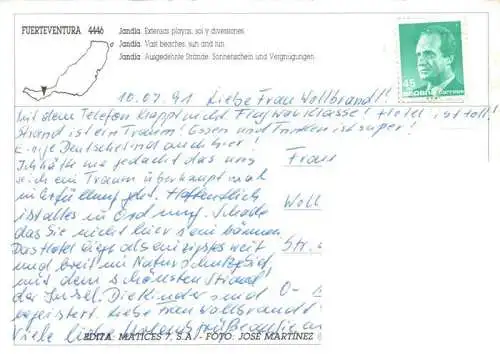 FUERTEVENTURA 4446
Jandía. Extensas playas, sol y diversiones.
Jandia. Vast beaches, sun and fun.
Jandia. Ausgedehnte Strände. Sonnenschein und Vergnügungen.
45
España Correos
10.07.91 Liebe Frau Wollbrandt!
mit dem Telefon klappt nicht Flug war klasse! Hotel ist toll!
Strand ist ein Traum! Essen und Trinken ist super!
Einige Deutsche sind auch hier!
Ich hätte nie gedacht das uns
Frau
sich ein Traum überhaupt mal
in Erfüllung geht. Hoffentlich
Woll
ist alles in Ordnung. Schade
das Sie nicht hier sein können.
Das Hotel liegt als einzigstes weit
Str.
und breit im Naturschutzgebiet
mit dem schönsten Strand
der Insel. Die Kinder sind
O-
begeistert. Liebe Frau Wollbrandt
Viele liebe
EDITA: MATICES T, S.A. - FOTO: JOSÉ MARTÍNEZ